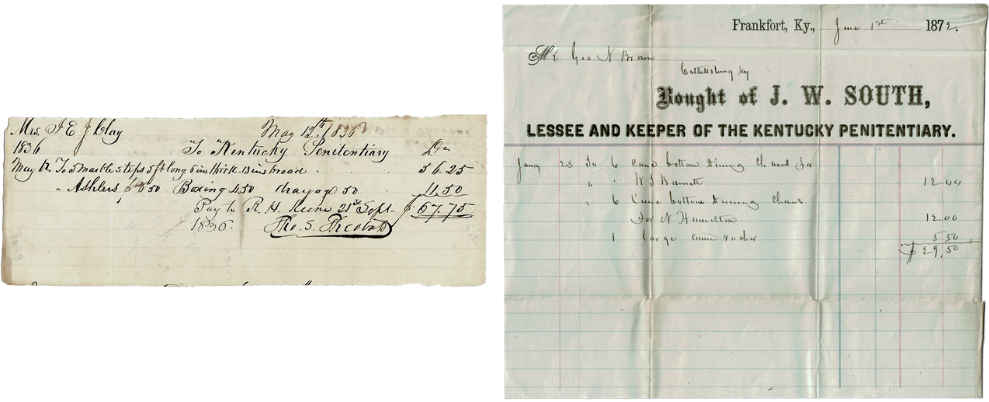 Mrs. I E J Clay May 12th, 1836
1836 To Kentucky Penitentiary Dr
May 12. To 5 marble steps 5 ft long 6 in thick 13 in broad 56.25
" Ashlers $6.50 Boxing 4.50 drayag 50 11.50
Pay to R. H. 21st Sept. $67.75
1836. Tho. S. Theobald
Frankfort, Ky., June 1st 1872.
Mr Geo N Brown
Catlettsburg Ky
Bought of J. W. SOUTH,
LESSEE AND KEEPER OF THE KENTUCKY PENITENTIARY.
Jany 23 To 6 Cane bottom Dining Chairs for
" " W S Burnett 12 00
" 6 Cane bottom Dining Chairs
for N Hamilton 12 00
1 large cane rocker 5 50
$29.50